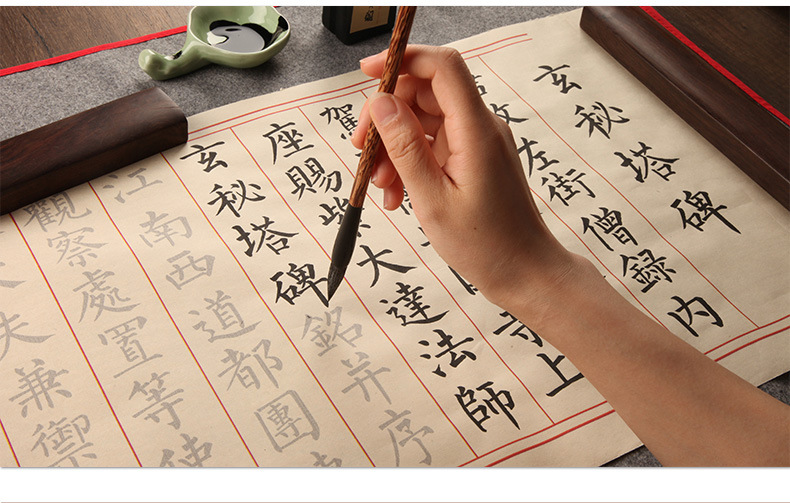 玄秘塔碑
故左街僧録内
駕寺上
座賜紫大達法師
玄秘塔碑銘并序
江南西道都團
觀察處置等使
夫兼禦